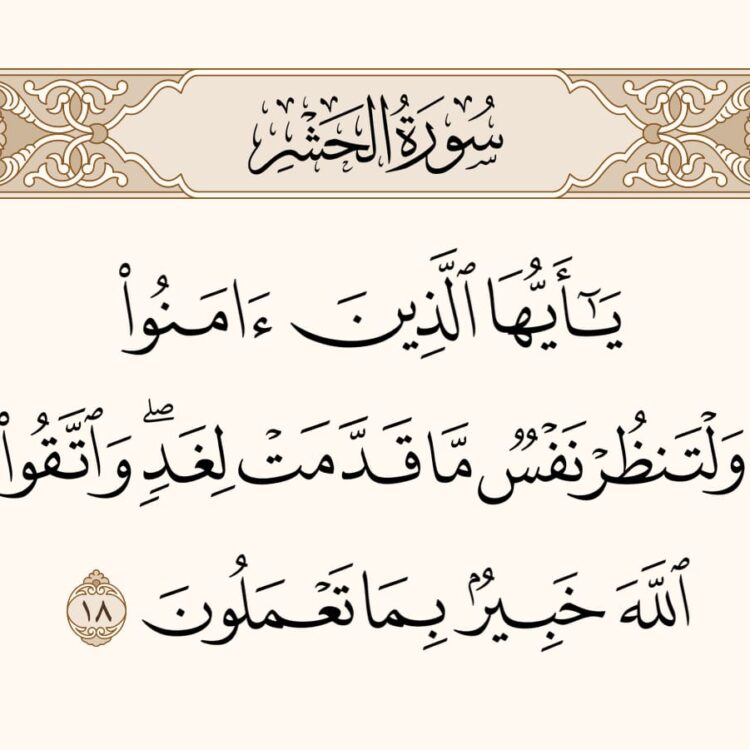 سُورَةُ الحَشْرِ
يَـٰٓأَيُّهَا ٱلَّذِينَ ءَامَنُوا۟
وَلْتَنظُرْ نَفْسٌ مَّا قَدَّمَتْ لِغَدٍ ۖ وَٱتَّقُوا۟
ٱللَّهَ خَبِيرٌۢ بِمَا تَعْمَلُونَ ١٨